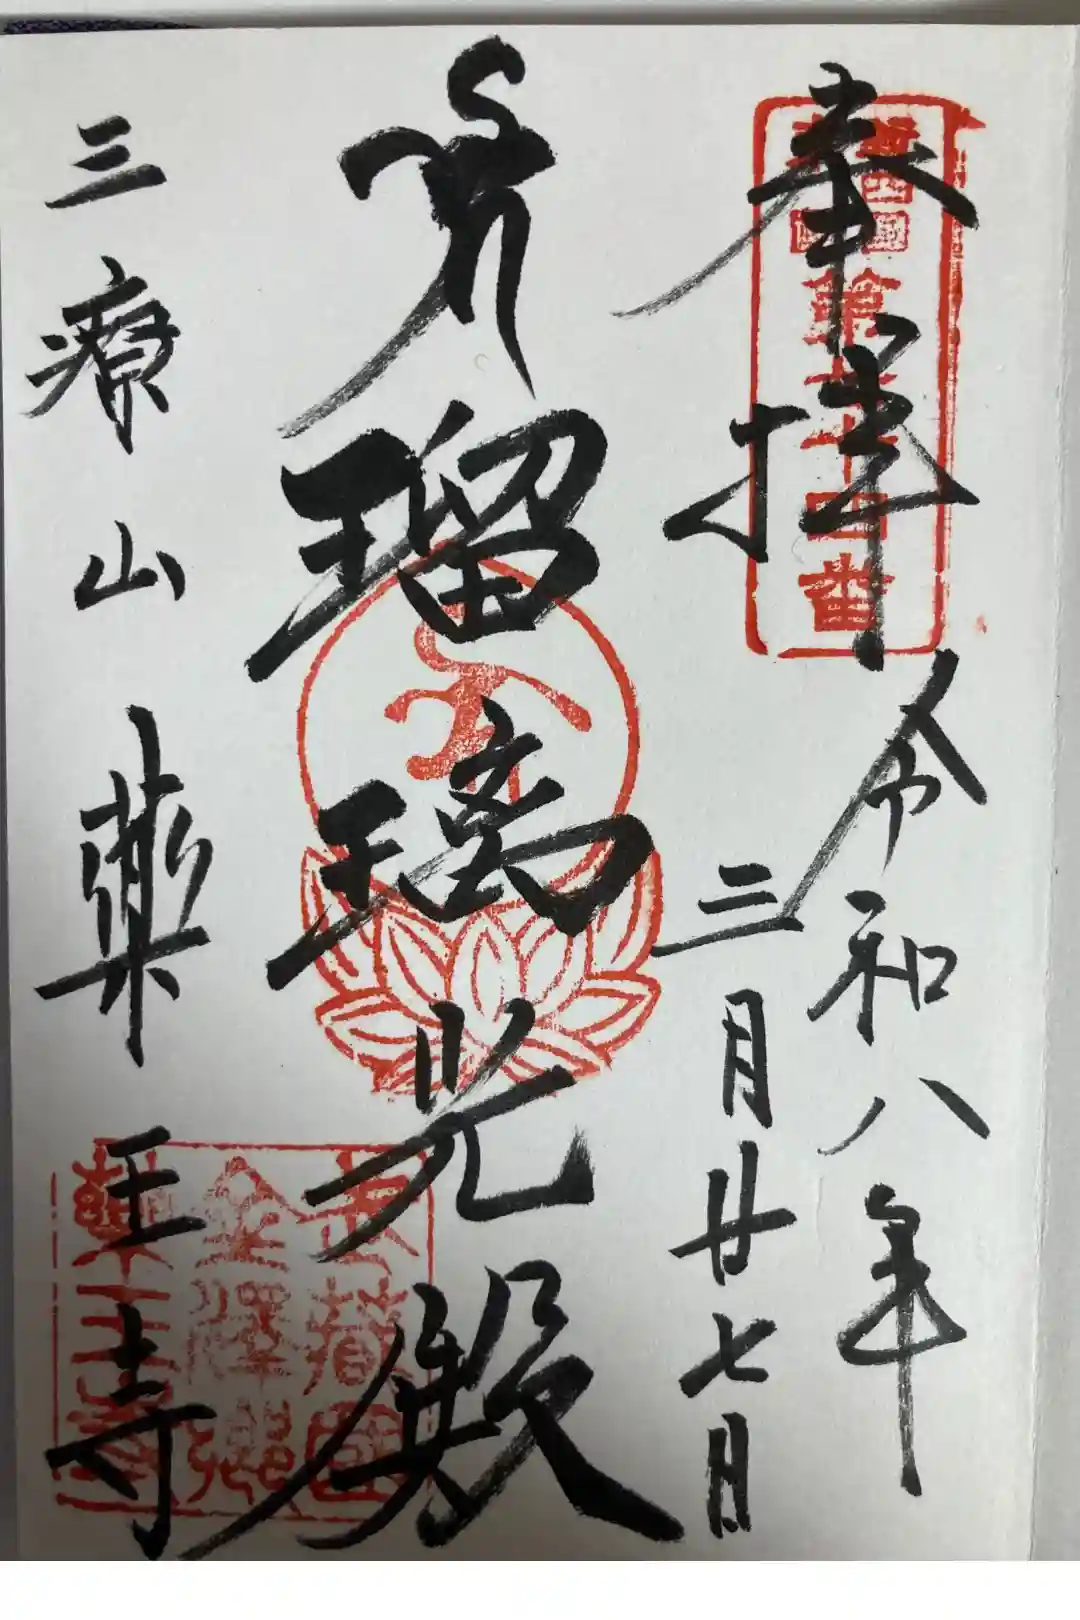 奉拝
令和八年
三月廿七日
瑠璃光殿
三療山薬王寺
金澤郷
薬王寺